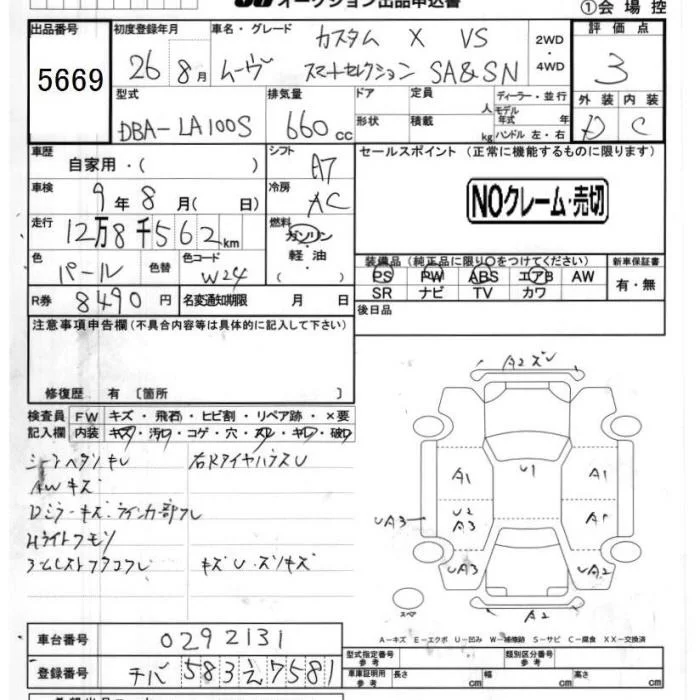 オークション出品申込書
①会場控
出品番号 5669
初度登録年月 26年 8月
車名・グレード ムーヴ カスタム X VS
スマートセレクション SA&SN
2WD・4WD
評価点 3
外装 D 内装 C
型式 DBA-LA100S
排気量 660cc
ドア 形状
定員 人
積載 kg
ディーラー・並行
モデル年式 年
ハンドル 左・右
車歴 自家用・( )
シフト A7
セールスポイント (正常に機能するものに限ります)
車検 9年 8月( 日)
冷房 AC
NOクレーム・売切
走行 12万8千562km
燃料 ガソリン・軽油・( )
色 パール 色替
色コード W24
装備品 (純正品に限り○をつけてください)
PS PW ABS エアB AW
SR ナビ TV カワ
新車保証書 有・無
R券 8490円
名変通知期限 月 日
後日品
注意事項申告欄 (不具合内容等は具体的に記入して下さい)
修復歴 有 〔箇所 〕
検査員 FW キズ・飛石・ヒビ割・リペア跡・×要
記入欄 内装 キズ・汚れ・コゲ・穴・スレ・キレ・破れ
右Rタイヤハウス U
AWキズ
Dミラーキズ・ウインカー部ワレ
Hライトクモリ
キズU・スリキズ
A2ズレ
U1
A1
A1
U2
A3
A1
UA3
UA3
UA2
A2
スペア
A-キズ E-エクボ U-凹み W-補修跡 S-サビ C-腐食 XX-交換済
車台番号 0292131
登録番号 チバ 583 ム 7581
型式指定番号 参考
類別区分番号 参考
車庫証明用 参考 長さ 幅 高さ